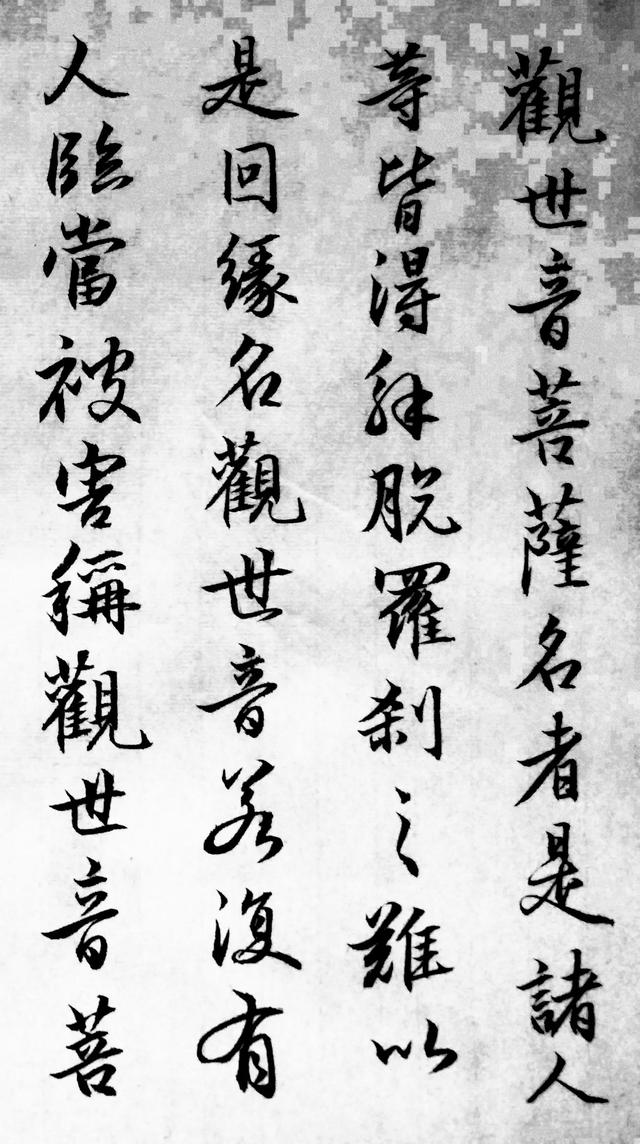 觀世音菩薩名者是諸人
等皆得解脫羅剎之難以
是因緣名觀世音若復有
人臨當被害稱觀世音菩